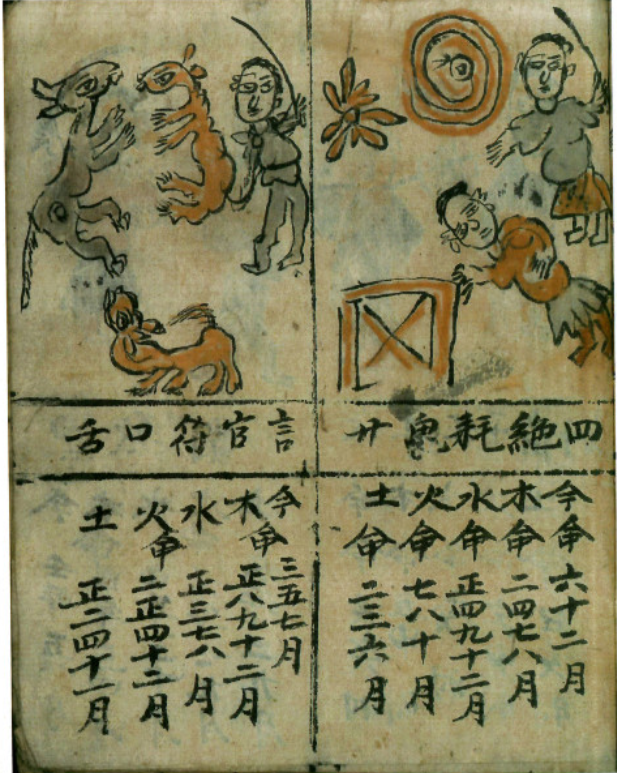 四絶耗鬼廿
令命六十二月
木命二四七八月
水命正四九十二月
火命七八十月
土命二三六月
言官符口舌
令三五七月
木命正八九十二月
水正三七八月
火命二正四十二月
土正二四十一月